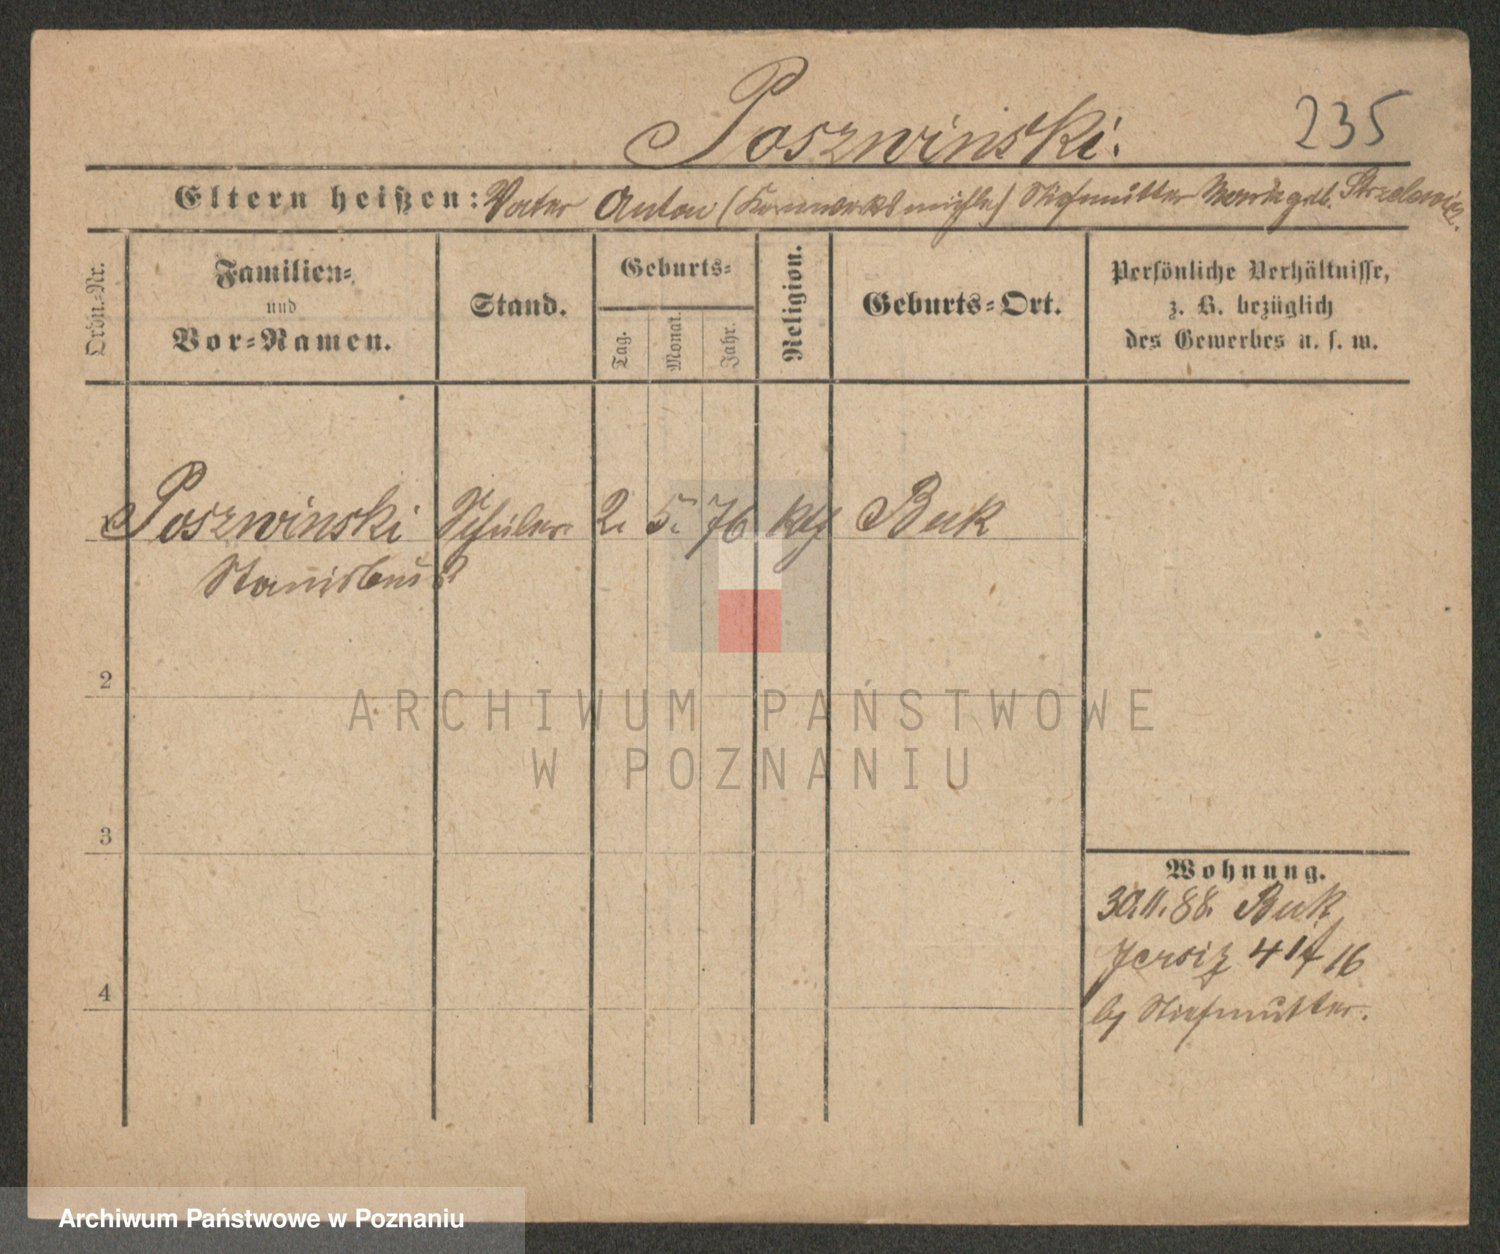 Poszwinski.
235
Eltern heißen: Vater Anton Stiefmutter Maria geb. Strzelewicz.
Ordn.-Nr.
Familien-
und
Vor-Namen.
Stand.
Geburts-
Tag.
Monat.
Jahr.
Religion.
Geburts-Ort.
Persönliche Verhältnisse,
z. B. bezüglich
des Gewerbes u. s. w.
Poszwinski Schüler 2. 5. 76 kth Buk
Stanislaus
2
ARCHIWUM PAŃSTWOWE
W POZNANIU
3
Wohnung.
30.11.88. Buk
Jersiz 41 16
4
b/ Stiefmutter.
Archiwum Państwowe w Poznaniu